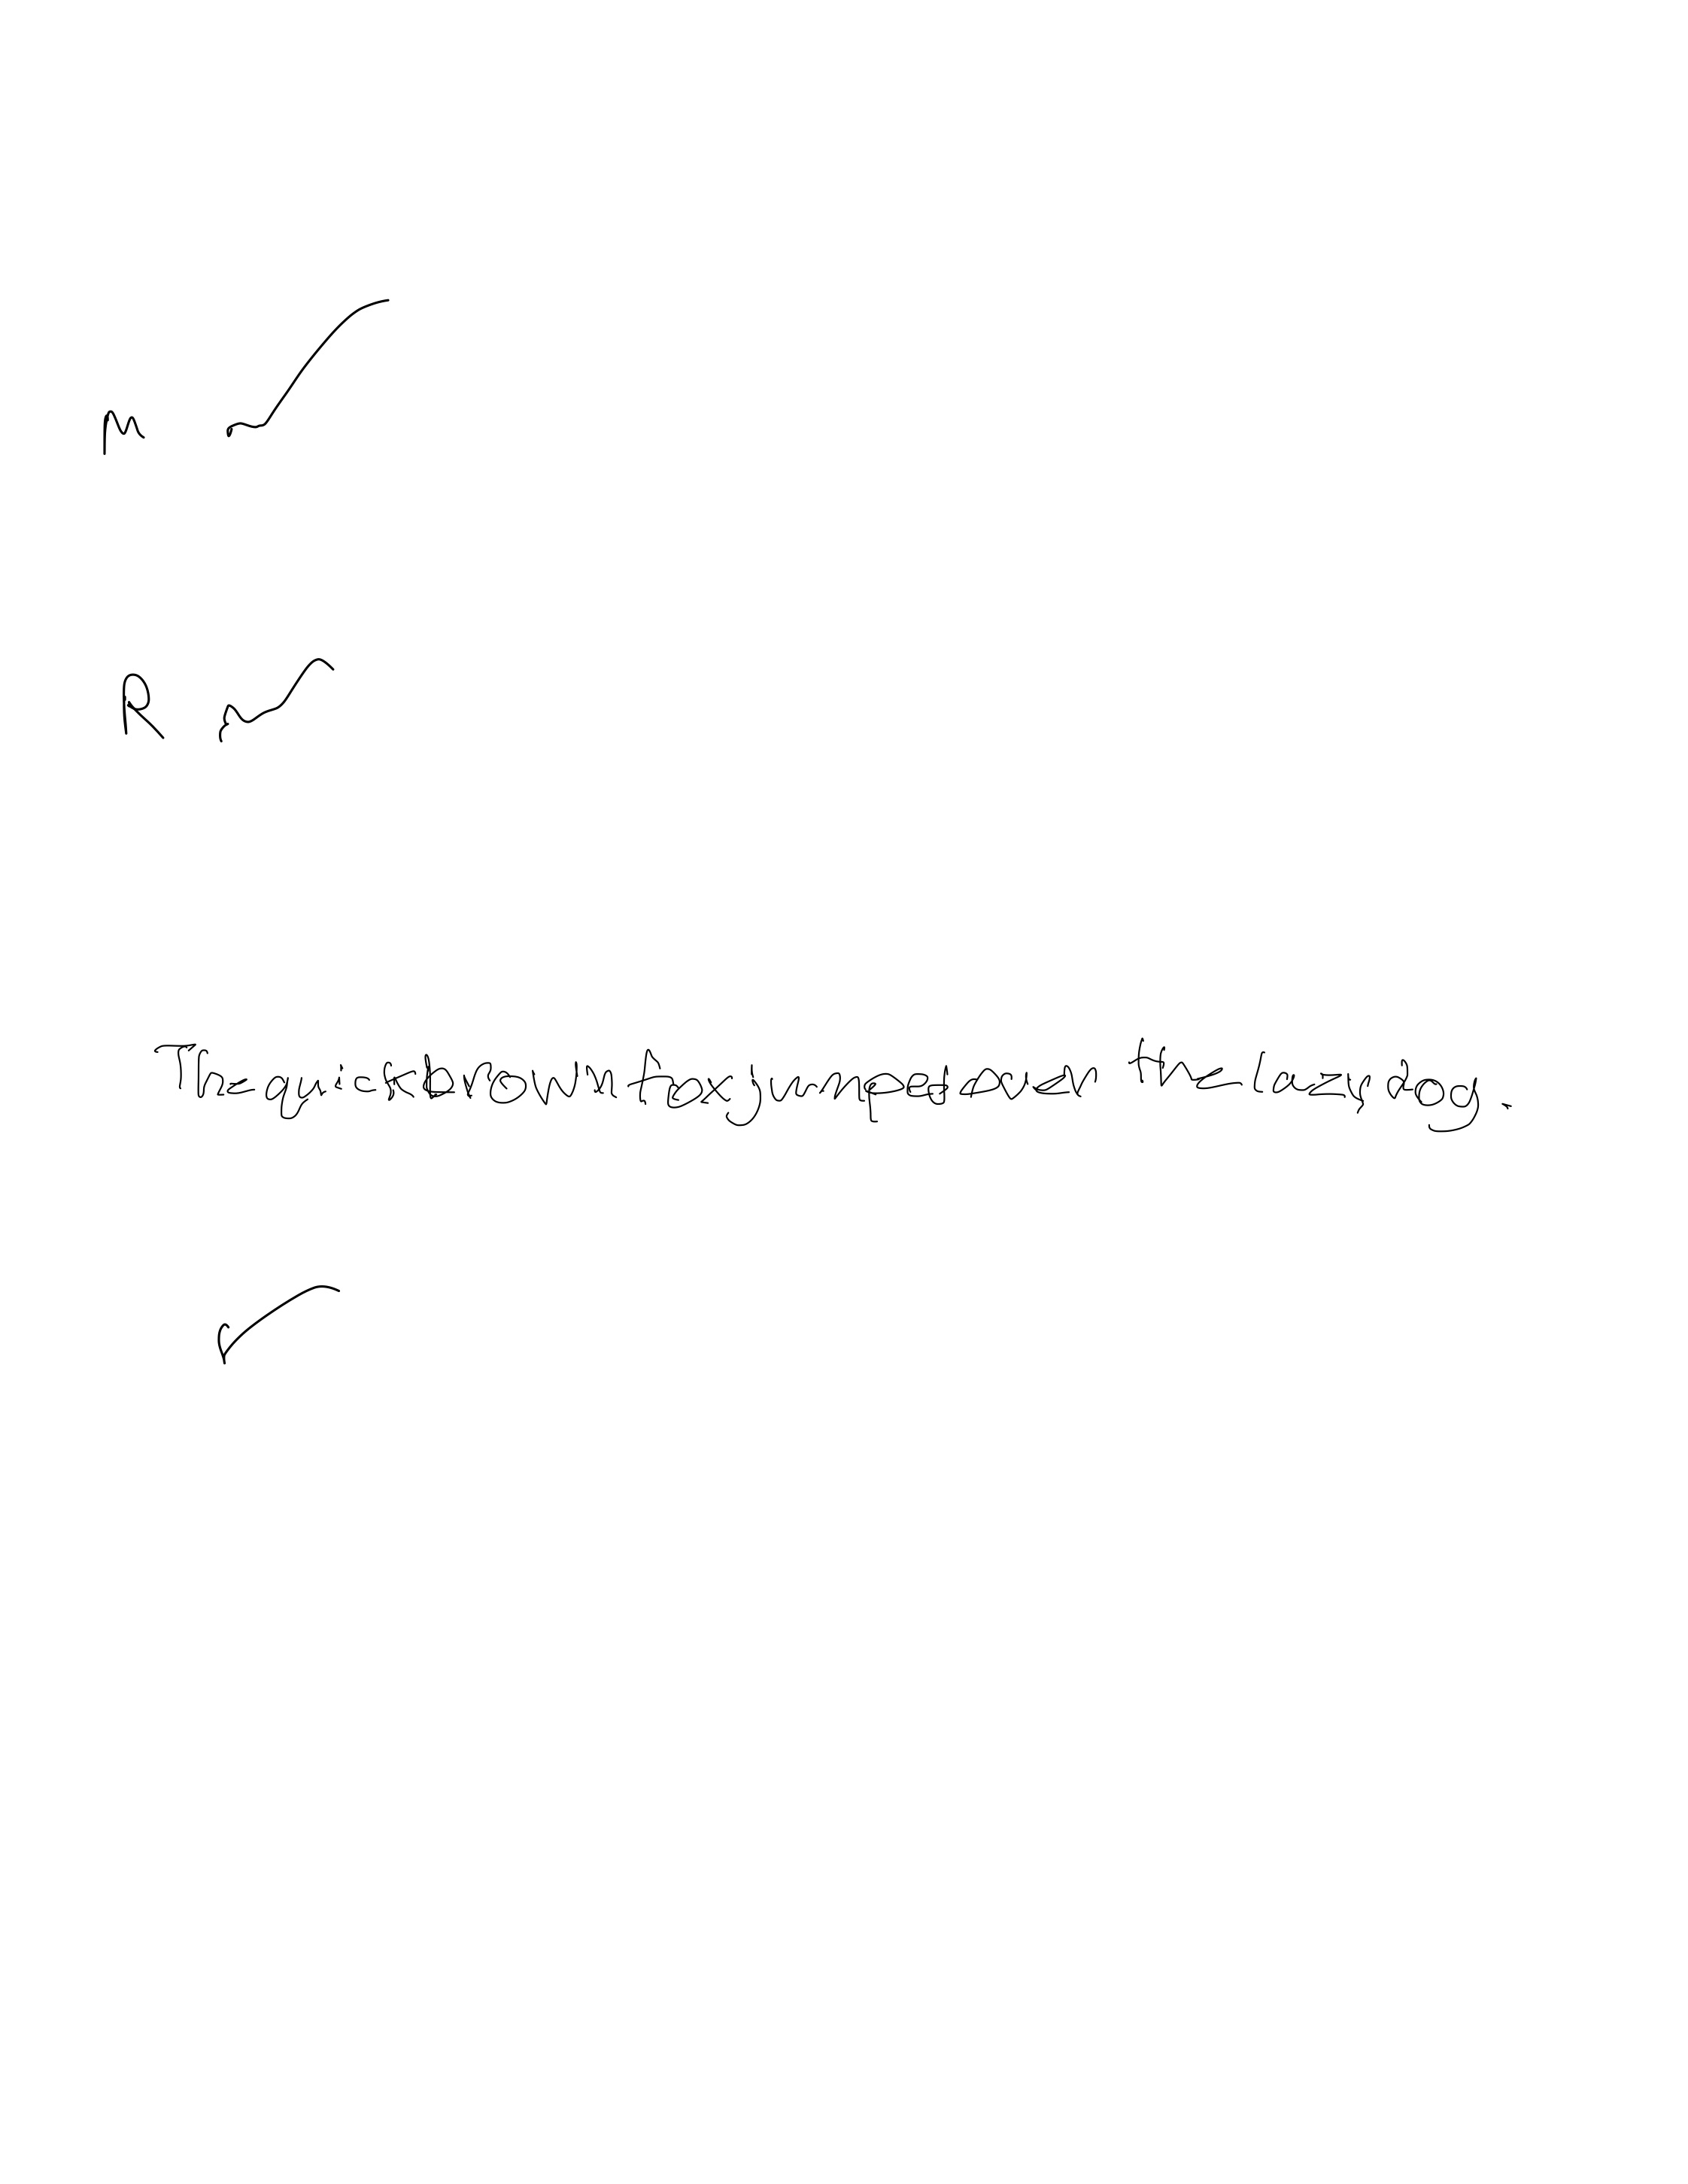 M
R
The quick brown fox jumped over the lazy dog.